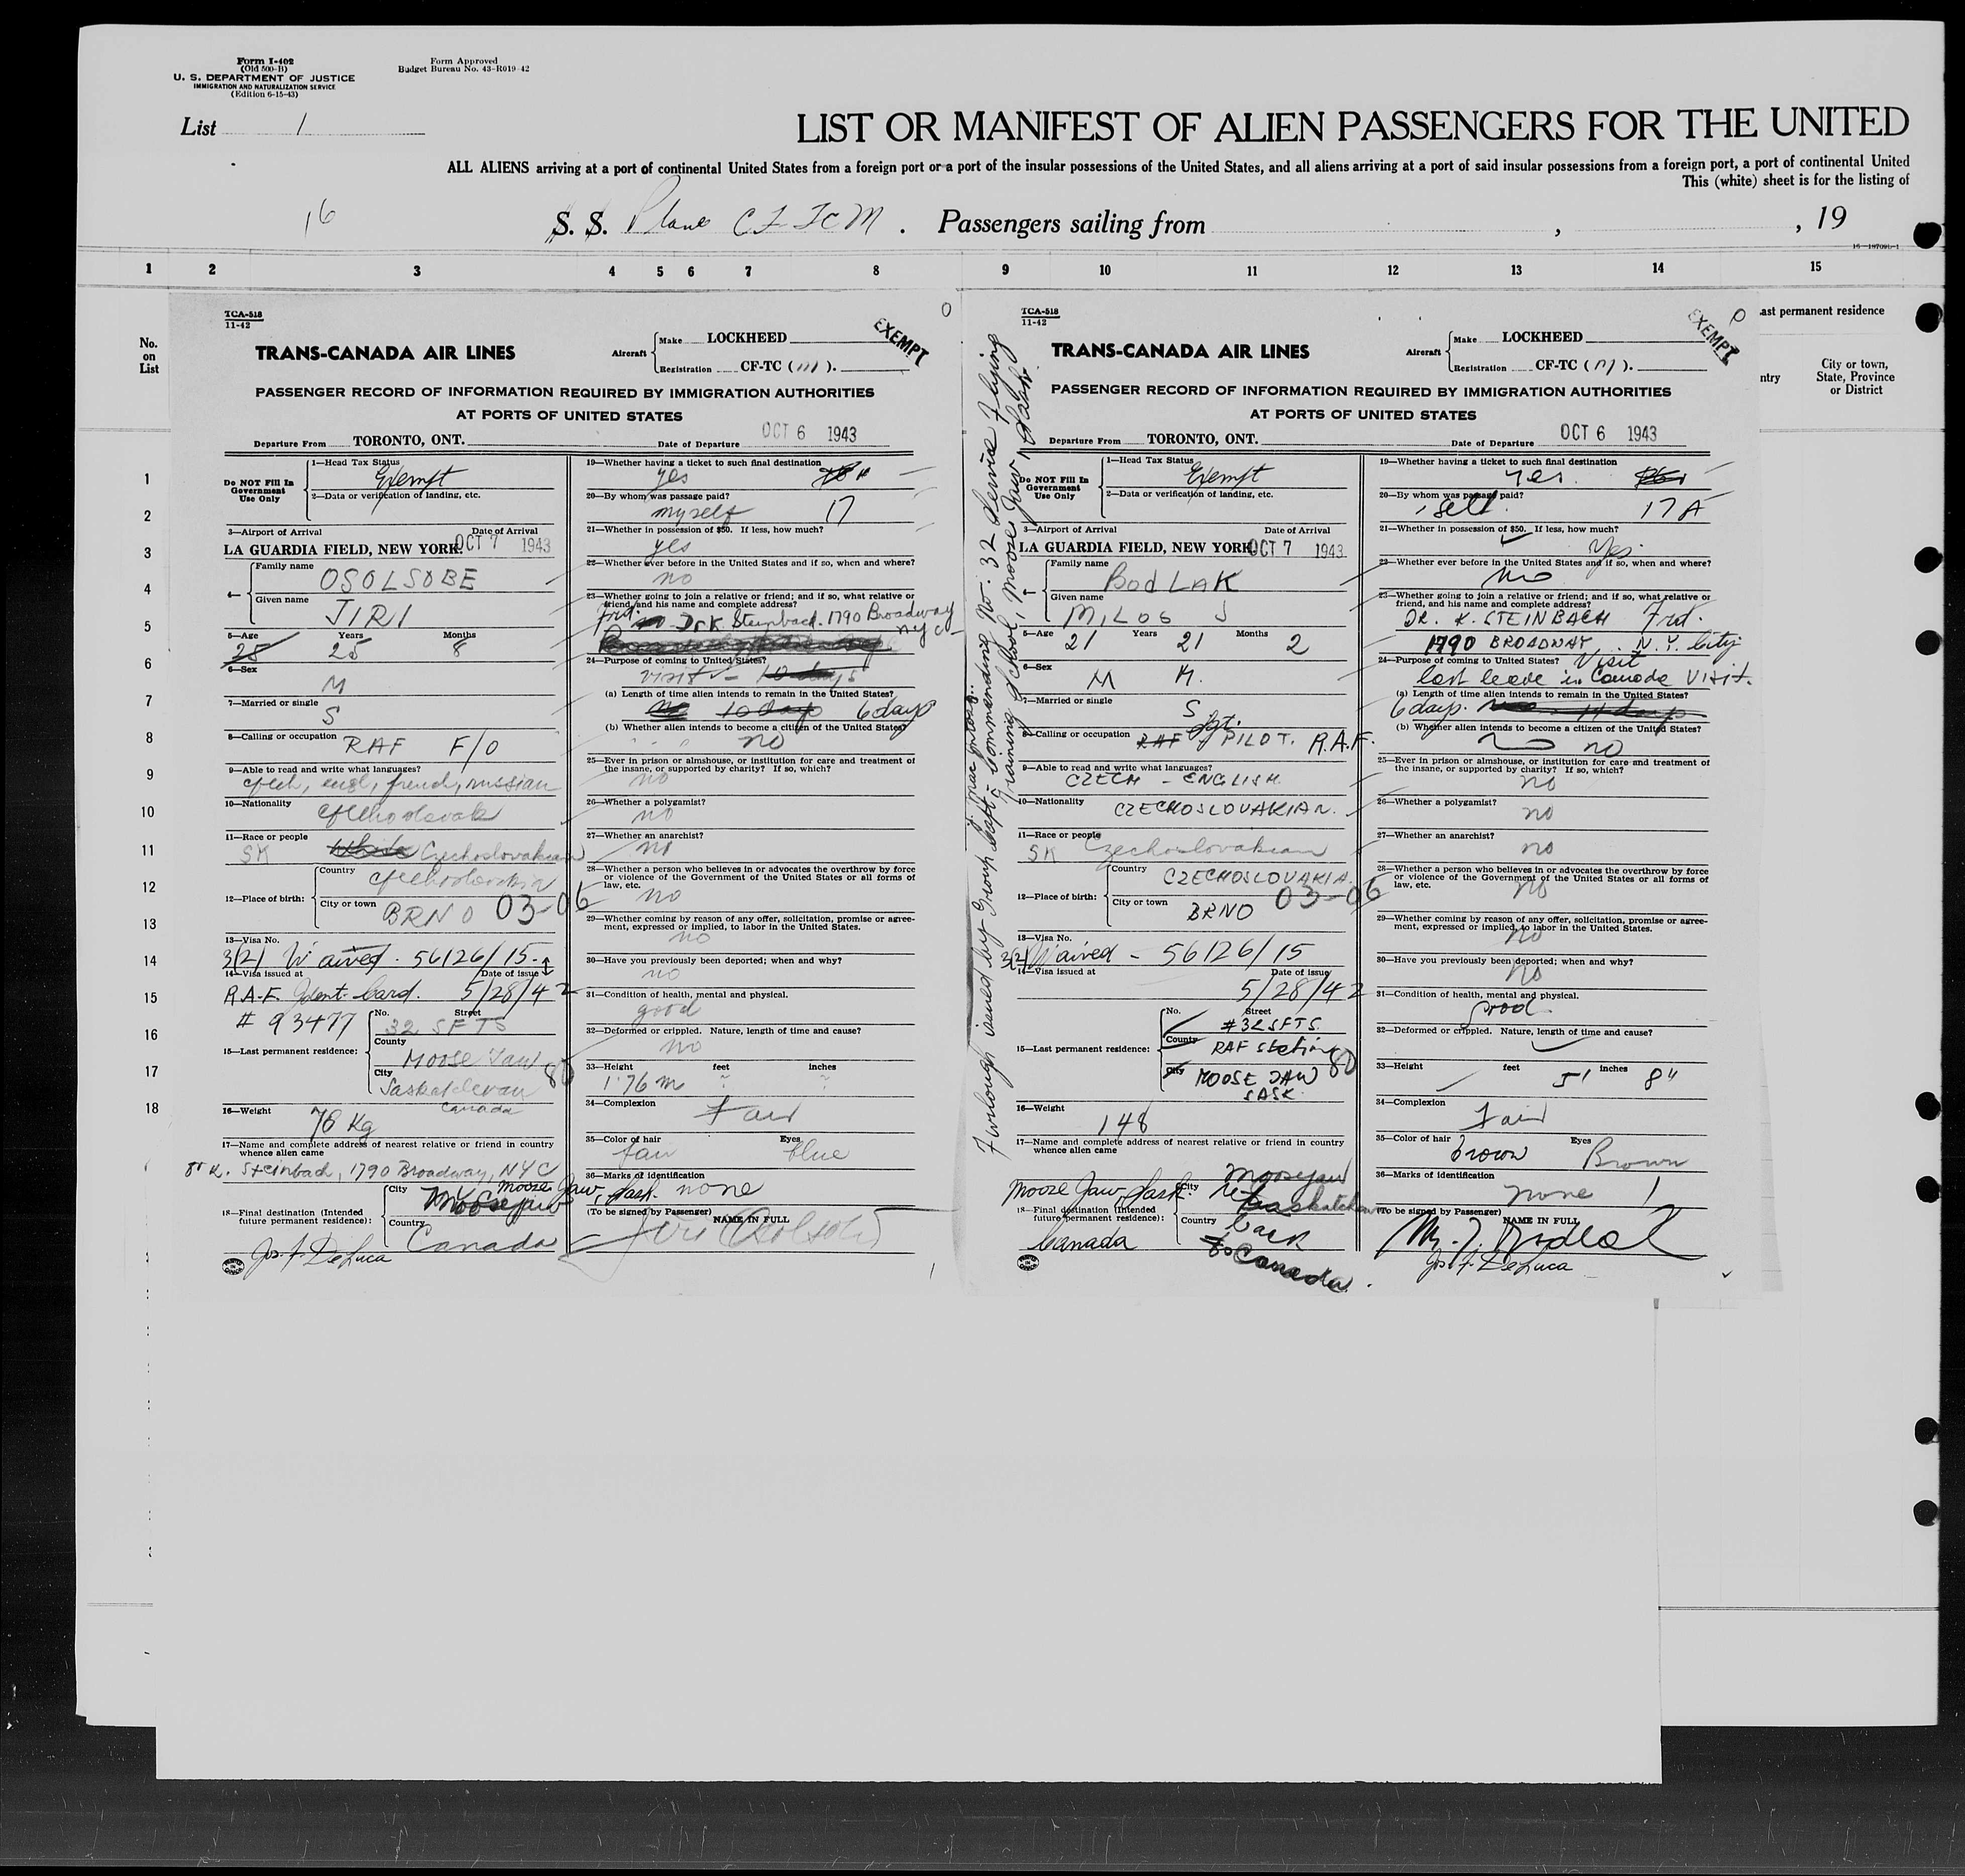 Form I-402
(Old 500-B)
U. S. DEPARTMENT OF JUSTICE
IMMIGRATION AND NATURALIZATION SERVICE
(Edition 6-15-43)
Form Approved
Budget Bureau No. 43-R019-42
List 1
LIST OR MANIFEST OF ALIEN PASSENGERS FOR THE UNITED
ALL ALIENS arriving at a port of continental United States from a foreign port or a port of the insular possessions of the United States, and all aliens arriving at a port of said insular possessions from a foreign port, a port of continental United
This (white) sheet is for the listing of
16 S. S. Plane CF TCM . Passengers sailing from , , 19
1 2 3 4 5 6 7 8 9 10 11 12 13 14 15
No.
on
List
1
2
3
4
5
6
7
8
9
10
11
12
13
14
15
16
17
18
ast permanent residence
ntry
City or town,
State, Province
or District
TCA-518
11-42
TRANS-CANADA AIR LINES
Aircraft Make LOCKHEED
Registration CF-TC (M).
EXEMPT
PASSENGER RECORD OF INFORMATION REQUIRED BY IMMIGRATION AUTHORITIES
AT PORTS OF UNITED STATES
Departure From TORONTO, ONT. Date of Departure OCT 6 1943
Do NOT Fill In
Government
Use Only
1—Head Tax Status
Exempt
2—Data or verification of landing, etc.
3—Airport of Arrival Date of Arrival
LA GUARDIA FIELD, NEW YORK. OCT 7 1943
4— Family name
OSOLSOBE
Given name
JIRI
5—Age Years Months
25 25 8
6—Sex
M
7—Married or single
S
8—Calling or occupation RAF F/O
9—Able to read and write what languages?
czech, engl, french, russian
10—Nationality
czechoslovak
11—Race or people
SK white Czechoslovakian
12—Place of birth: Country
czechoslovakia
City or town BRNO 03-06
13—Visa No.
3(2) Waived. 56126/15.
14—Visa issued at Date of issue
R.A.F. Ident. Card. 5/28/42
# 93477
15—Last permanent residence: No. Street
32 SFTS
County
MOOSE JAW
City
Saskatchewan 80
Canada
16—Weight
76 Kg
17—Name and complete address of nearest relative or friend in country
whence alien came
Dr K. Steinbach, 1790 Broadway, NYC
18—Final destination (Intended
future permanent residence): City Moose Jaw, Sask.
Country Canada
Jos. F. DeLuca
19—Whether having a ticket to such final destination
yes
20—By whom was passage paid?
myself 17
21—Whether in possession of $50. If less, how much?
yes
22—Whether ever before in the United States and if so, when and where?
no
23—Whether going to join a relative or friend; and if so, what relative or
friend, and his name and complete address?
Frd. Dr K. Steinbach. 1790 Broadway
NYC
24—Purpose of coming to United States?
visit – 10 days
(a) Length of time alien intends to remain in the United States?
10 days 6 days
(b) Whether alien intends to become a citizen of the United States?
no
25—Ever in prison or almshouse, or institution for care and treatment of
the insane, or supported by charity? If so, which?
no
26—Whether a polygamist?
no
27—Whether an anarchist?
no
28—Whether a person who believes in or advocates the overthrow by force
or violence of the Government of the United States or all forms of
law, etc.
no
29—Whether coming by reason of any offer, solicitation, promise or agree-
ment, expressed or implied, to labor in the United States.
no
30—Have you previously been deported; when and why?
no
31—Condition of health, mental and physical.
good
32—Deformed or crippled. Nature, length of time and cause?
no
33—Height feet inches
1·76 m
34—Complexion
Fair
35—Color of hair Eyes
fair blue
36—Marks of identification
none
(To be signed by Passenger) NAME IN FULL
Jiri Osolsobe
TCA-518
11-42
TRANS-CANADA AIR LINES
Aircraft Make LOCKHEED
Registration CF-TC (M).
EXEMPT
PASSENGER RECORD OF INFORMATION REQUIRED BY IMMIGRATION AUTHORITIES
AT PORTS OF UNITED STATES
Departure From TORONTO, ONT. Date of Departure OCT 6 1943
Furlough issued by Group Capt. Commanding No. 32 Service Flying
Training School, Moose Jaw, Sask.
Do NOT Fill In
Government
Use Only
1—Head Tax Status
Exempt
2—Data or verification of landing, etc.
3—Airport of Arrival Date of Arrival
LA GUARDIA FIELD, NEW YORK. OCT 7 1943
4— Family name
BODLAK
Given name
MILOS J
5—Age Years Months
21 21 2
6—Sex
M M.
7—Married or single
S
8—Calling or occupation RAF Sgt. PILOT. R.A.F.
9—Able to read and write what languages?
CZECH – ENGLISH
10—Nationality
CZECHOSLOVAKIAN.
11—Race or people
SK Czechoslovakian
12—Place of birth: Country
CZECHOSLOVAKIA.
City or town BRNO 03-06
13—Visa No.
3(2) Waived – 56126/15
14—Visa issued at Date of issue
5/28/42
15—Last permanent residence: No. Street
#32 SFTS.
County
RAF Station
City MOOSE JAW 80
SASK.
16—Weight
148
17—Name and complete address of nearest relative or friend in country
whence alien came
Moosejaw
Moose Jaw, Sask. City Saskatchewan
18—Final destination (Intended
future permanent residence): Country back
Canada to Canada.
19—Whether having a ticket to such final destination
yes.
20—By whom was passage paid?
self. 17A
21—Whether in possession of $50. If less, how much?
Yes.
22—Whether ever before in the United States and if so, when and where?
no
23—Whether going to join a relative or friend; and if so, what relative or
friend, and his name and complete address?
DR. K. STEINBACH Frd.
1790 BROADWAY N.Y. City
24—Purpose of coming to United States? Visit
last leave in Canada Visit.
(a) Length of time alien intends to remain in the United States?
6 days. 14 days
(b) Whether alien intends to become a citizen of the United States?
no
25—Ever in prison or almshouse, or institution for care and treatment of
the insane, or supported by charity? If so, which?
no
26—Whether a polygamist?
no
27—Whether an anarchist?
no
28—Whether a person who believes in or advocates the overthrow by force
or violence of the Government of the United States or all forms of
law, etc.
no
29—Whether coming by reason of any offer, solicitation, promise or agree-
ment, expressed or implied, to labor in the United States.
no
30—Have you previously been deported; when and why?
no
31—Condition of health, mental and physical.
good.
32—Deformed or crippled. Nature, length of time and cause?
33—Height feet inches
5' 8"
34—Complexion
Fair
35—Color of hair Eyes
brown Brown
36—Marks of identification
none
(To be signed by Passenger) NAME IN FULL
M. J. Bodlak
Jos. F. DeLuca